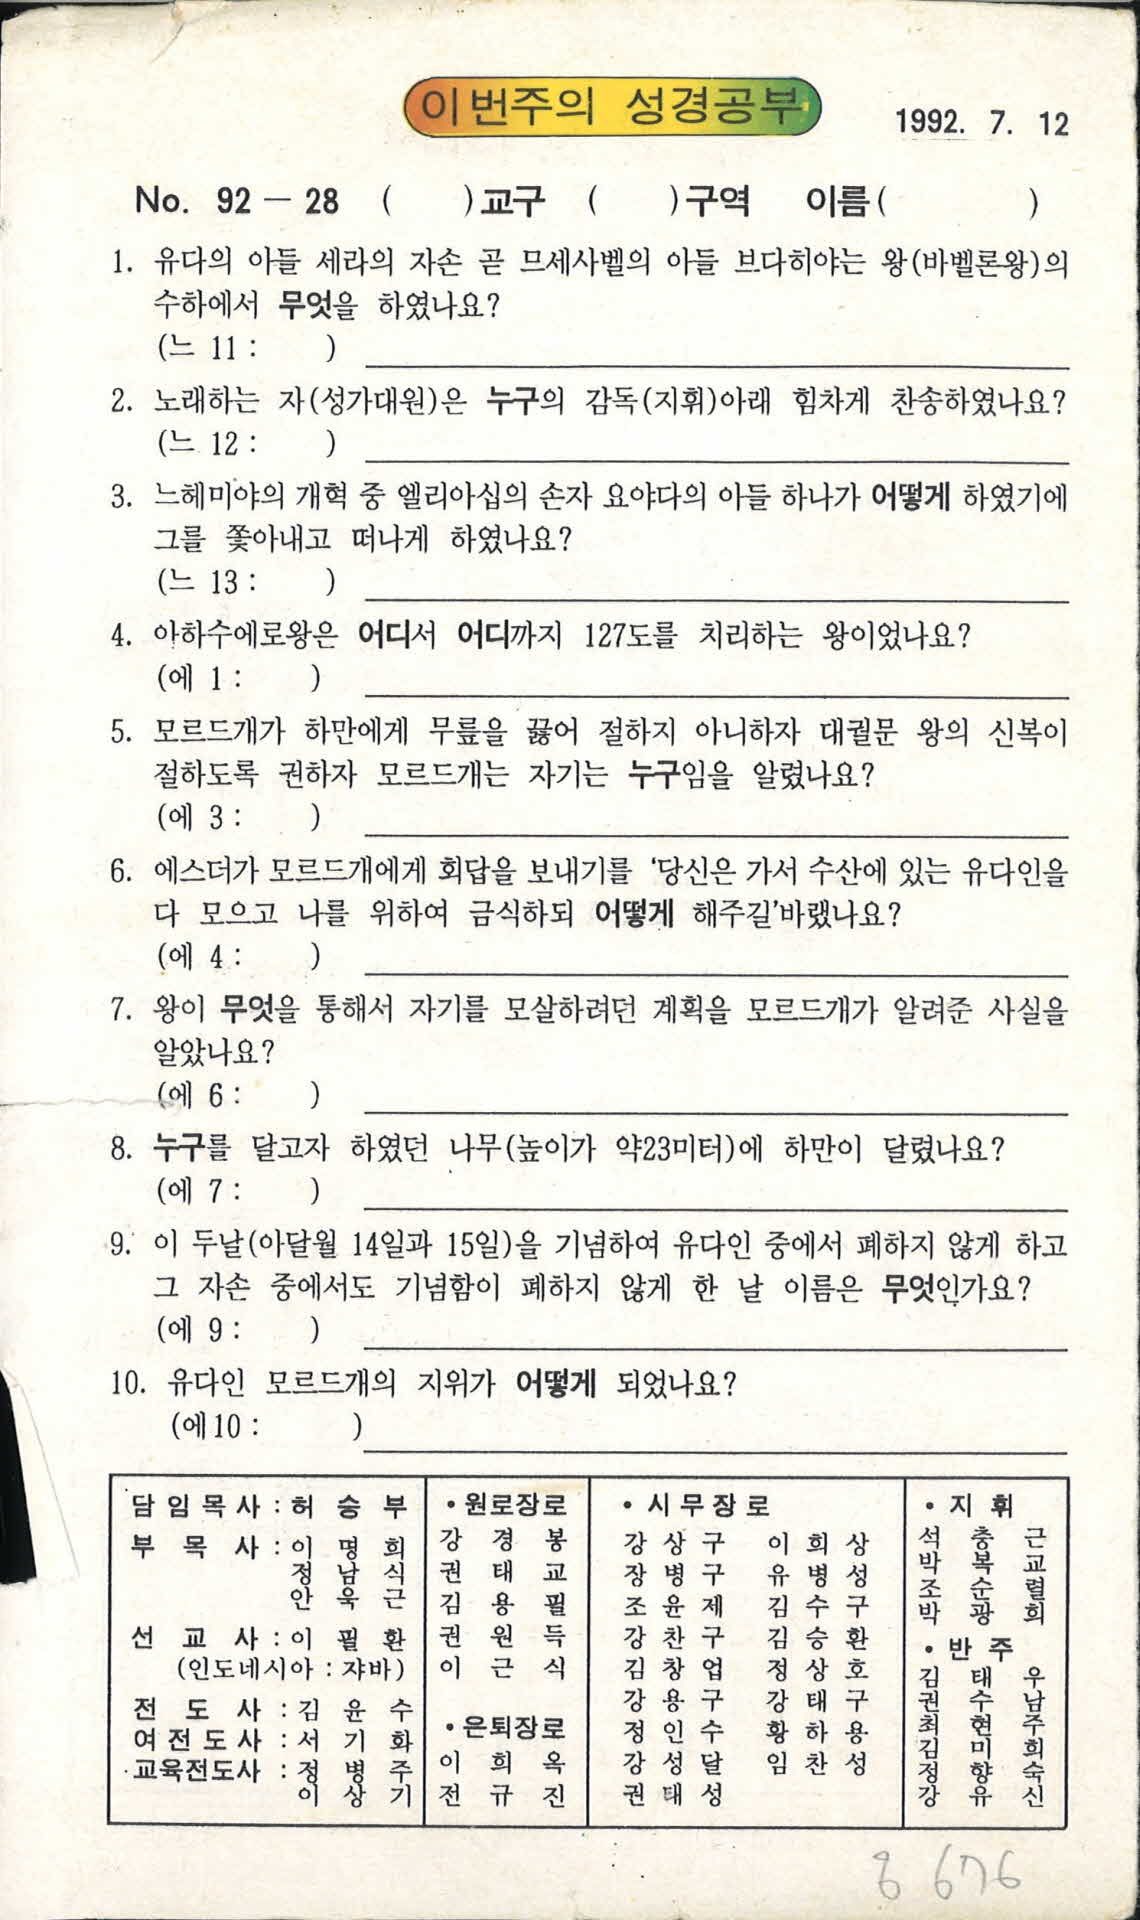 이번주의 성경공부
1992. 7. 12
No. 92 - 28 ( )교구 ( )구역 이름( )
1. 유다의 아들 세라의 자손 곧 므세사벨의 아들 브다히야는 왕(바벨론왕)의
수하에서 무엇을 하였나요?
(느 11 : )
2. 노래하는 자(성가대원)은 누구의 감독(지휘)아래 힘차게 찬송하였나요?
(느 12 : )
3. 느헤미야의 개혁 중 엘리아십의 손자 요야다의 아들 하나가 어떻게 하였기에
그를 쫓아내고 떠나게 하였나요?
(느 13 : )
4. 아하수에로왕은 어디서 어디까지 127도를 치리하는 왕이었나요?
(에 1 : )
5. 모르드개가 하만에게 무릎을 꿇어 절하지 아니하자 대궐문 왕의 신복이
절하도록 권하자 모르드개는 자기는 누구임을 알렸나요?
(에 3 : )
6. 에스더가 모르드개에게 회답을 보내기를 '당신은 가서 수산에 있는 유다인을
다 모으고 나를 위하여 금식하되 어떻게 해주길'바랬나요?
(에 4 : )
7. 왕이 무엇을 통해서 자기를 모살하려던 계획을 모르드개가 알려준 사실을
알았나요?
(에 6 : )
8. 누구를 달고자 하였던 나무(높이가 약23미터)에 하만이 달렸나요?
(에 7 : )
9. 이 두날(아달월 14일과 15일)을 기념하여 유다인 중에서 폐하지 않게 하고
그 자손 중에서도 기념함이 폐하지 않게 한 날 이름은 무엇인가요?
(에 9 : )
10. 유다인 모르드개의 지위가 어떻게 되었나요?
(에10 : )
담임목사 : 허 승 부
부 목 사 : 이 명 희
정 남 식
안 욱 근
선 교 사 : 이 필 환
(인도네시아 : 쟈바)
전 도 사 : 김 윤 수
여전도사 : 서 기 화
교육전도사 : 정 병 주
이 상 기
• 원로장로
강 경 봉
권 태 교
김 용 필
권 원 득
이 근 식
• 은퇴장로
이 희 옥
전 규 진
• 시무장로
강 상 구 이 희 상
장 병 구 유 병 성
조 윤 제 김 수 구
강 찬 구 김 승 환
김 창 업 정 상 호
강 용 구 강 태 구
정 인 수 황 하 용
강 성 달 임 찬 성
권 태 성
• 지 휘
석 충 근
박 복 교
조 순 렬
박 광 희
• 반 주
김 태 우
권 수 남
최 현 주
김 미 희
정 향 숙
강 유 신
8 676